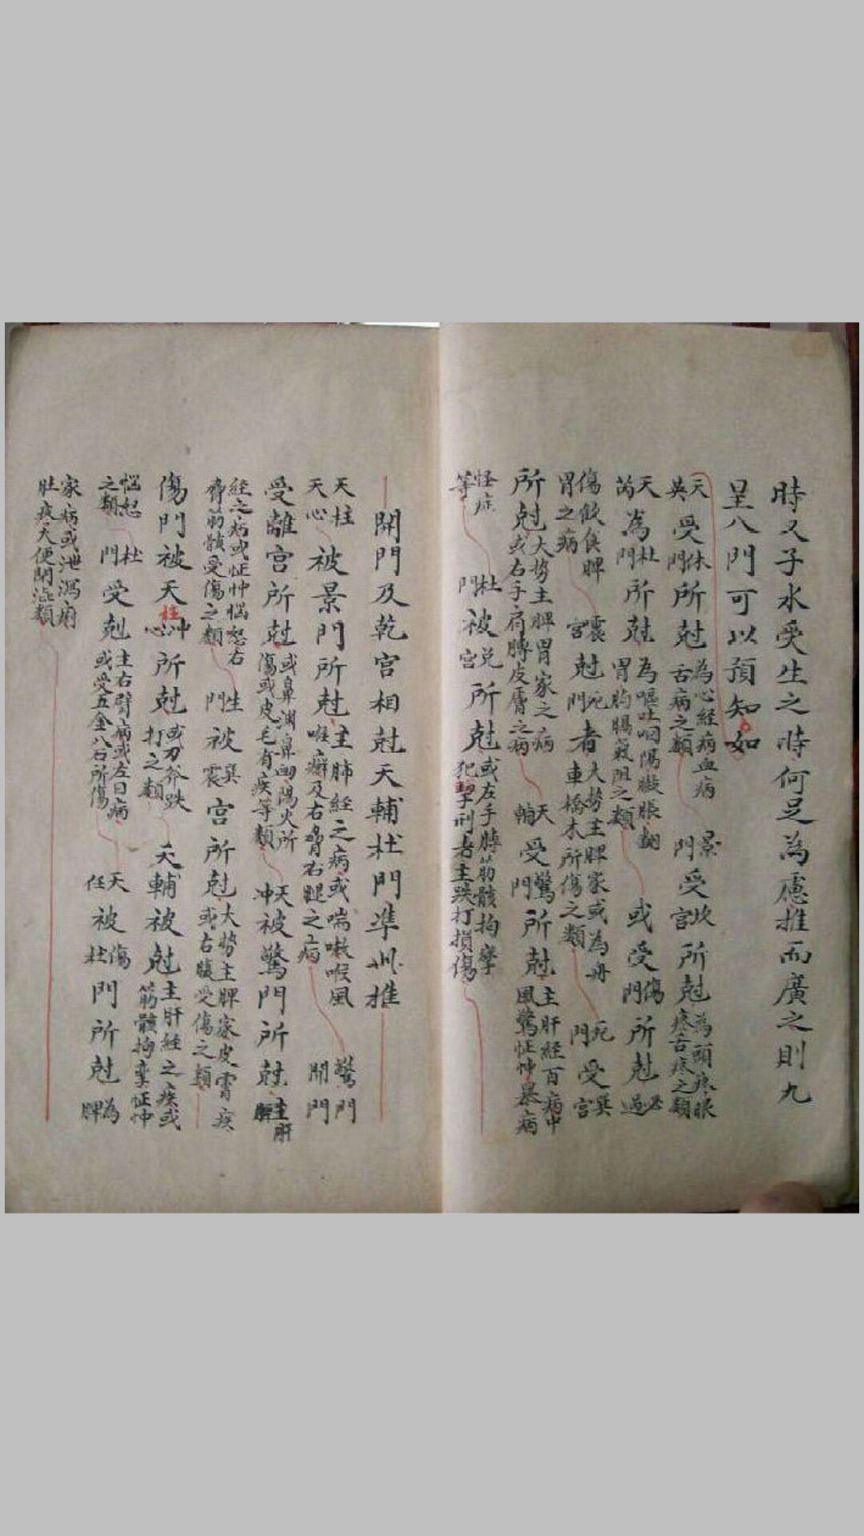 時又子水受生之時何足為慮推而廣之則九
呈八門可以預知如
天英受休門所尅為心經病血病舌病之類景門受坎宮所尅為頭疼眼疼舌疼之類
天芮為杜門所尅為嘔吐咽隔膨脹翻胃胸膈氣阻之類或受傷門所尅必過
傷飲食脾胃之病震宮尅死門者大勢主脾家或為舟車橋木所傷之類死門受巽宮
所尅大勢主脾胃家之病或右手肩膊皮膚之病天輔受驚門所尅主肝經百病中風驚怔忡暴病
怪症等杜門被兌宮所尅或左手膊筋骸拘攣犯擊刑者主跌打損傷
開門及乾宮相尅天輔杜門準此推
天柱天心被景門所尅主肺經之病或喘嗽喉風喉癬及右脅右腿之病驚門開門
受離宮所尅或鼻淵鼻衄陽火所傷或皮毛有疾等類天冲被驚門所尅主肝
經之病或怔忡惱怒右脅筋骸受傷之類生門被巽震宮所尅大勢主脾家皮膚疾或右腹受傷之類
傷門被天柱心所尅或刀斧跌打之類天輔被尅主肝經之疾或筋骸拘攣怔忡
惱怒之類杜門受尅主右臂病或左目病或受五金八石所傷天任被傷杜門所尅為脾
家病或泄瀉痢肚疼大便閉澁類